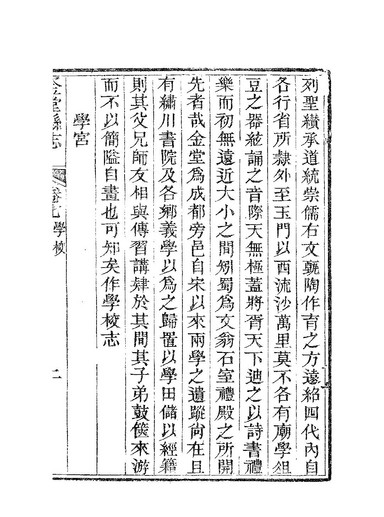 列聖纘承道統崇儒右文甄陶作育之方遠紹四代內自
各行省所隸外至玉門以西流沙萬里莫不各有廟學俎
豆之器絃誦之音際天無極蓋將胥天下迪之以詩書禮
樂而初無遠近大小之間矧蜀爲文翁石室禮殿之所開
先者哉金堂爲成都旁邑自宋以來兩學之遺蹤尙在且
有繡川書院及各鄉義學以爲之歸置以學田儲以經籍
則其父兄師友相與傳習講肄於其間其子弟鼓篋來游
而不以簡隘自畫也可知矣作學校志
學宮
金堂縣志
卷七學校
二